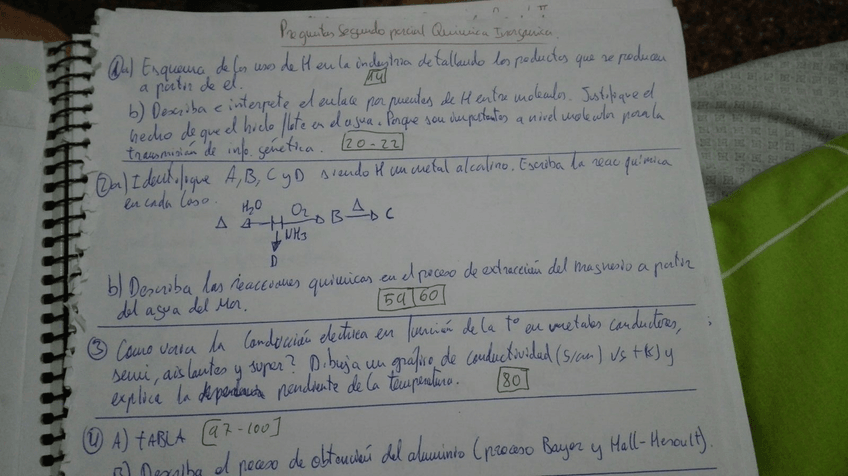 Preguntas Segundo parcial Química Inorgánica.
① a) Esquema de los usos de H en la industria detallando los productos que se producen
a partir de el. 14
b) Describa e interprete el enlace por puentes de H entre moleculas. Justifique el
hecho de que el hielo flote en el agua. Porque son importantes a nivel molecular para la
transmisión de info. genética. 20-22
② a) Identifique A, B, C y D siendo M un metal alcalino. Escriba la reac química
en cada caso.
H2O O2 Δ
A B C
NH3
D
b) Describa las reacciones químicas en el proceso de extracción del magnesio a partir
del agua del Mar. 59 60
③ Como varia la conducción electrica en función de la tº en metales conductores,
semi, aislantes y super? Dibuja un gráfico de conductividad (S/cm) vs t(k) y
explica la pendiente de la temperatura. 80
④ A) tABLA [97-100]
B) Describa el proceso de obtención del aluminio (proceso Bayer y Hall-Heroult).